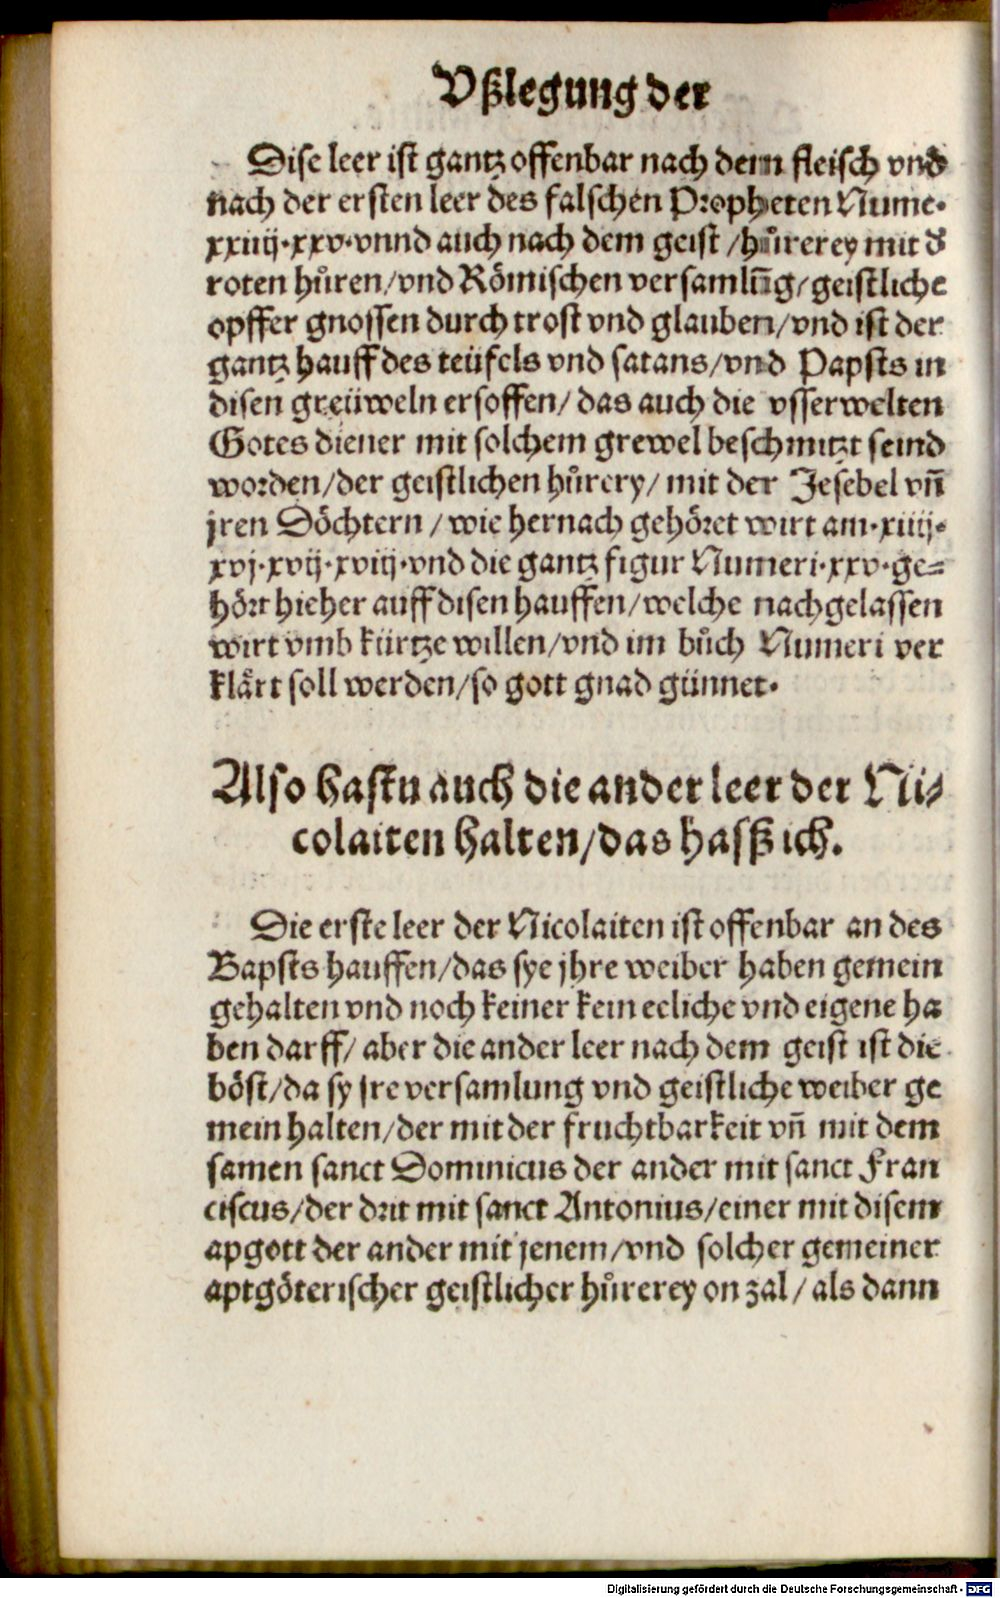 Vßlegung der
Dise leer ist gantz offenbar nach dem fleisch vnd
nach der ersten leer des falschen Propheten Nume.
xxiiij.xxv.vnnd auch nach dem geist/hůrerey mit d'
roten hůren/vnd Römischen versamlūg/geistliche
opffer gnossen durch trost vnd glauben/vnd ist der
gantz hauff des teüfels vnd satans/vnd Papsts in
disen greüweln ersoffen/das auch die vsserwelten
Gotes diener mit solchem grewel beschmutzt seind
worden/der geistlichen hůrery/mit der Jesebel vñ
jren Döchtern/wie hernach gehöret wirt am.xiiij.
xvj.xvij.xviij.vnd die gantz figur Numeri.xxv.ge=
hört hieher auff disen hauffen/welche nachgelassen
wirt vmb kürtze willen/vnd im bůch Numeri ver
klärt soll werden/so gott gnad günnet.
Also hastu auch die ander leer der Ni/
colaiten halten/das hasß ich.
Die erste leer der Nicolaiten ist offenbar an des
Bapsts hauffen/das sye jhre weiber haben gemein
gehalten vnd noch keiner kein eeliche vnd eigene ha
ben darff/aber die ander leer nach dem geist ist die
böst/da sy jre versamlung vnd geistliche weiber ge
mein halten/der mit der fruchtbarkeit vñ mit dem
samen sanct Dominicus der ander mit sanct Fran
ciscus/der drit mit sanct Antonius/einer mit disem
apgott der ander mit jenem/vnd solcher gemeiner
aptgöterischer geistlicher hůrerey on zal/als dann
Digitalisierung gefördert durch die Deutsche Forschungsgemeinschaft - DFG